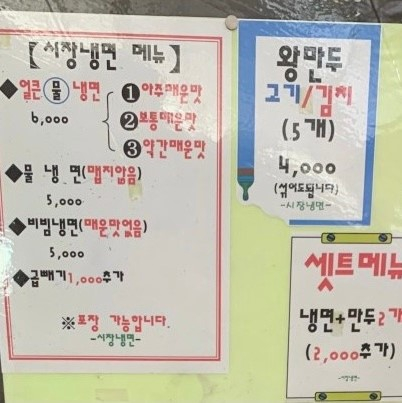 【시장냉면 메뉴】
◆얼큰 물 냉면
6,000
❶아주매운맛
❷보통매운맛
❸약간매운맛
◆물 냉 면(맵지않음)
5,000
◆비빔냉면(매운맛없음)
5,000
◆곱빼기1,000추가
※포장 가능합니다.
-시장냉면-
왕만두
고기/김치
(5개)
4,000
(섞어도됩니다)
-시장냉면-
셋트메뉴
냉면+만두2개
(2,000추가)
-시장냉면-